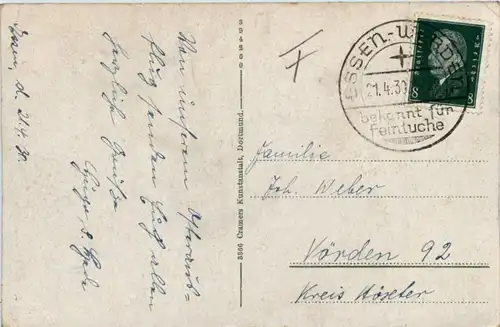 Essen, d. 21.4.30.
Von unserem Osteraus-
flug senden Euch allen
herzliche Grüße
394200
3306 Cramers Kunstanstalt, Dortmund.
ESSEN-WERDEN
21.4.30
bekannt für
feintuche
8 8
Familie
Joh. Weber
Vörden 92
Kreis Höxter